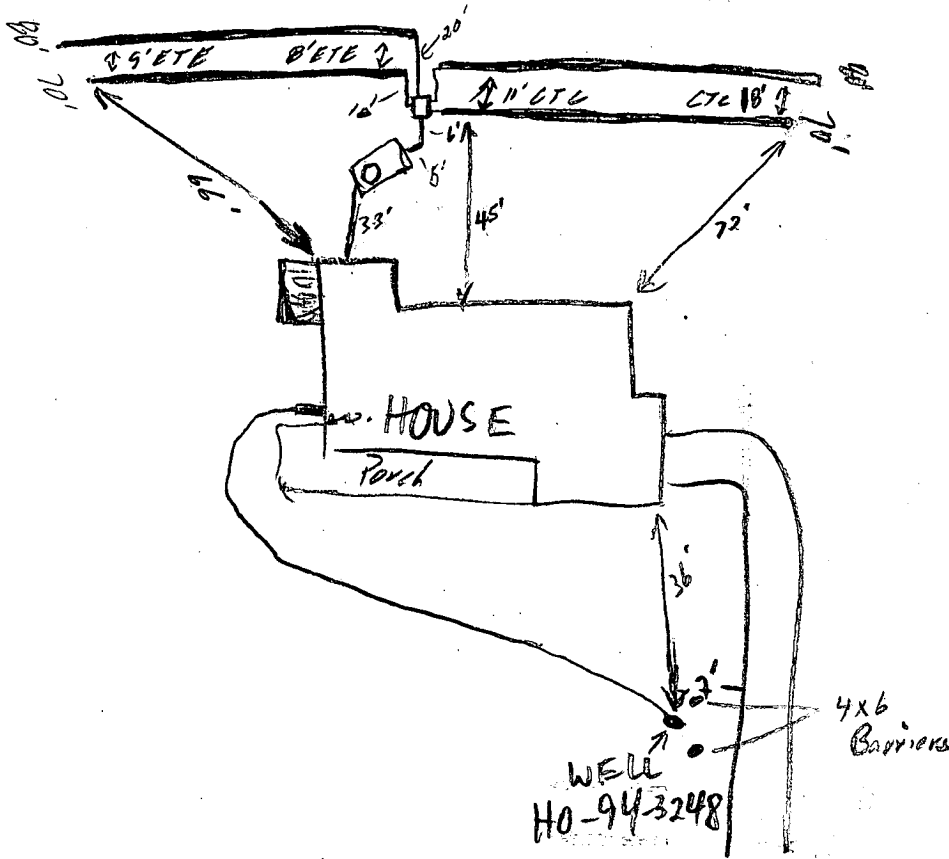 20'
80'
9' ETE
8' ETE
70'
11' CTC
CTC 18'
80
70'
10'
6'
5'
99'
33'
45'
72'
HOUSE
Porch
36'
7'
4x6
Barriers
WELL
HO-94-3248